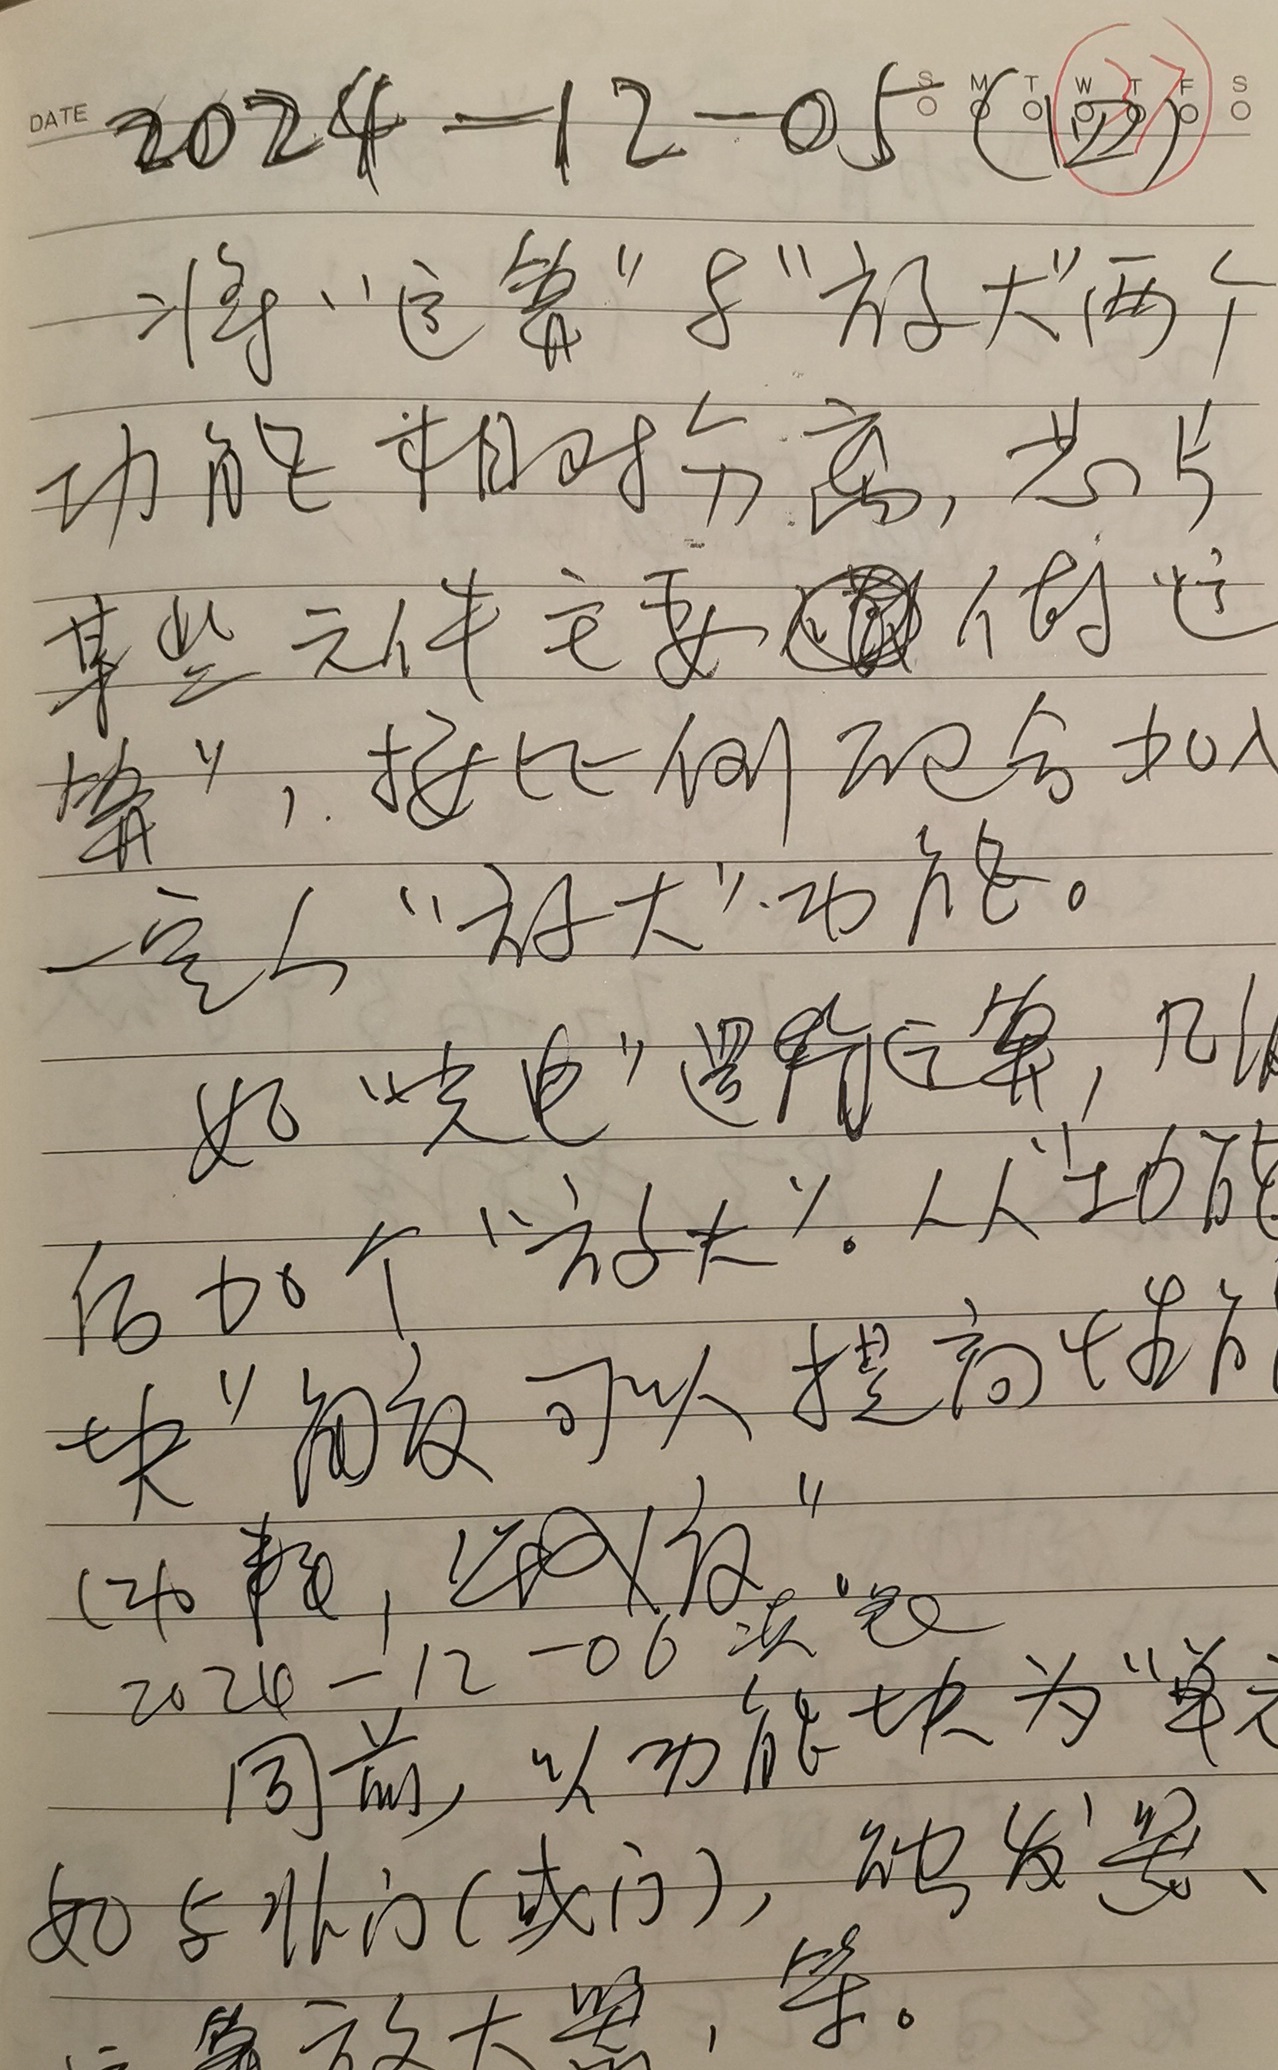 DATE 2024-12-05(四) S M T W T F S
将"运算"与"放大"两个
功能相对分离,芯片
某些元件主要做"运
算",按比例配合加入
一定"放大"功能。
如"光电"逻辑运算,几级
后加个"放大"。从"功能
块"角度可以提高性能
2024-12-06
同前,以功能块为"单元
如与非门(或门),触发器、
运算放大器,等。